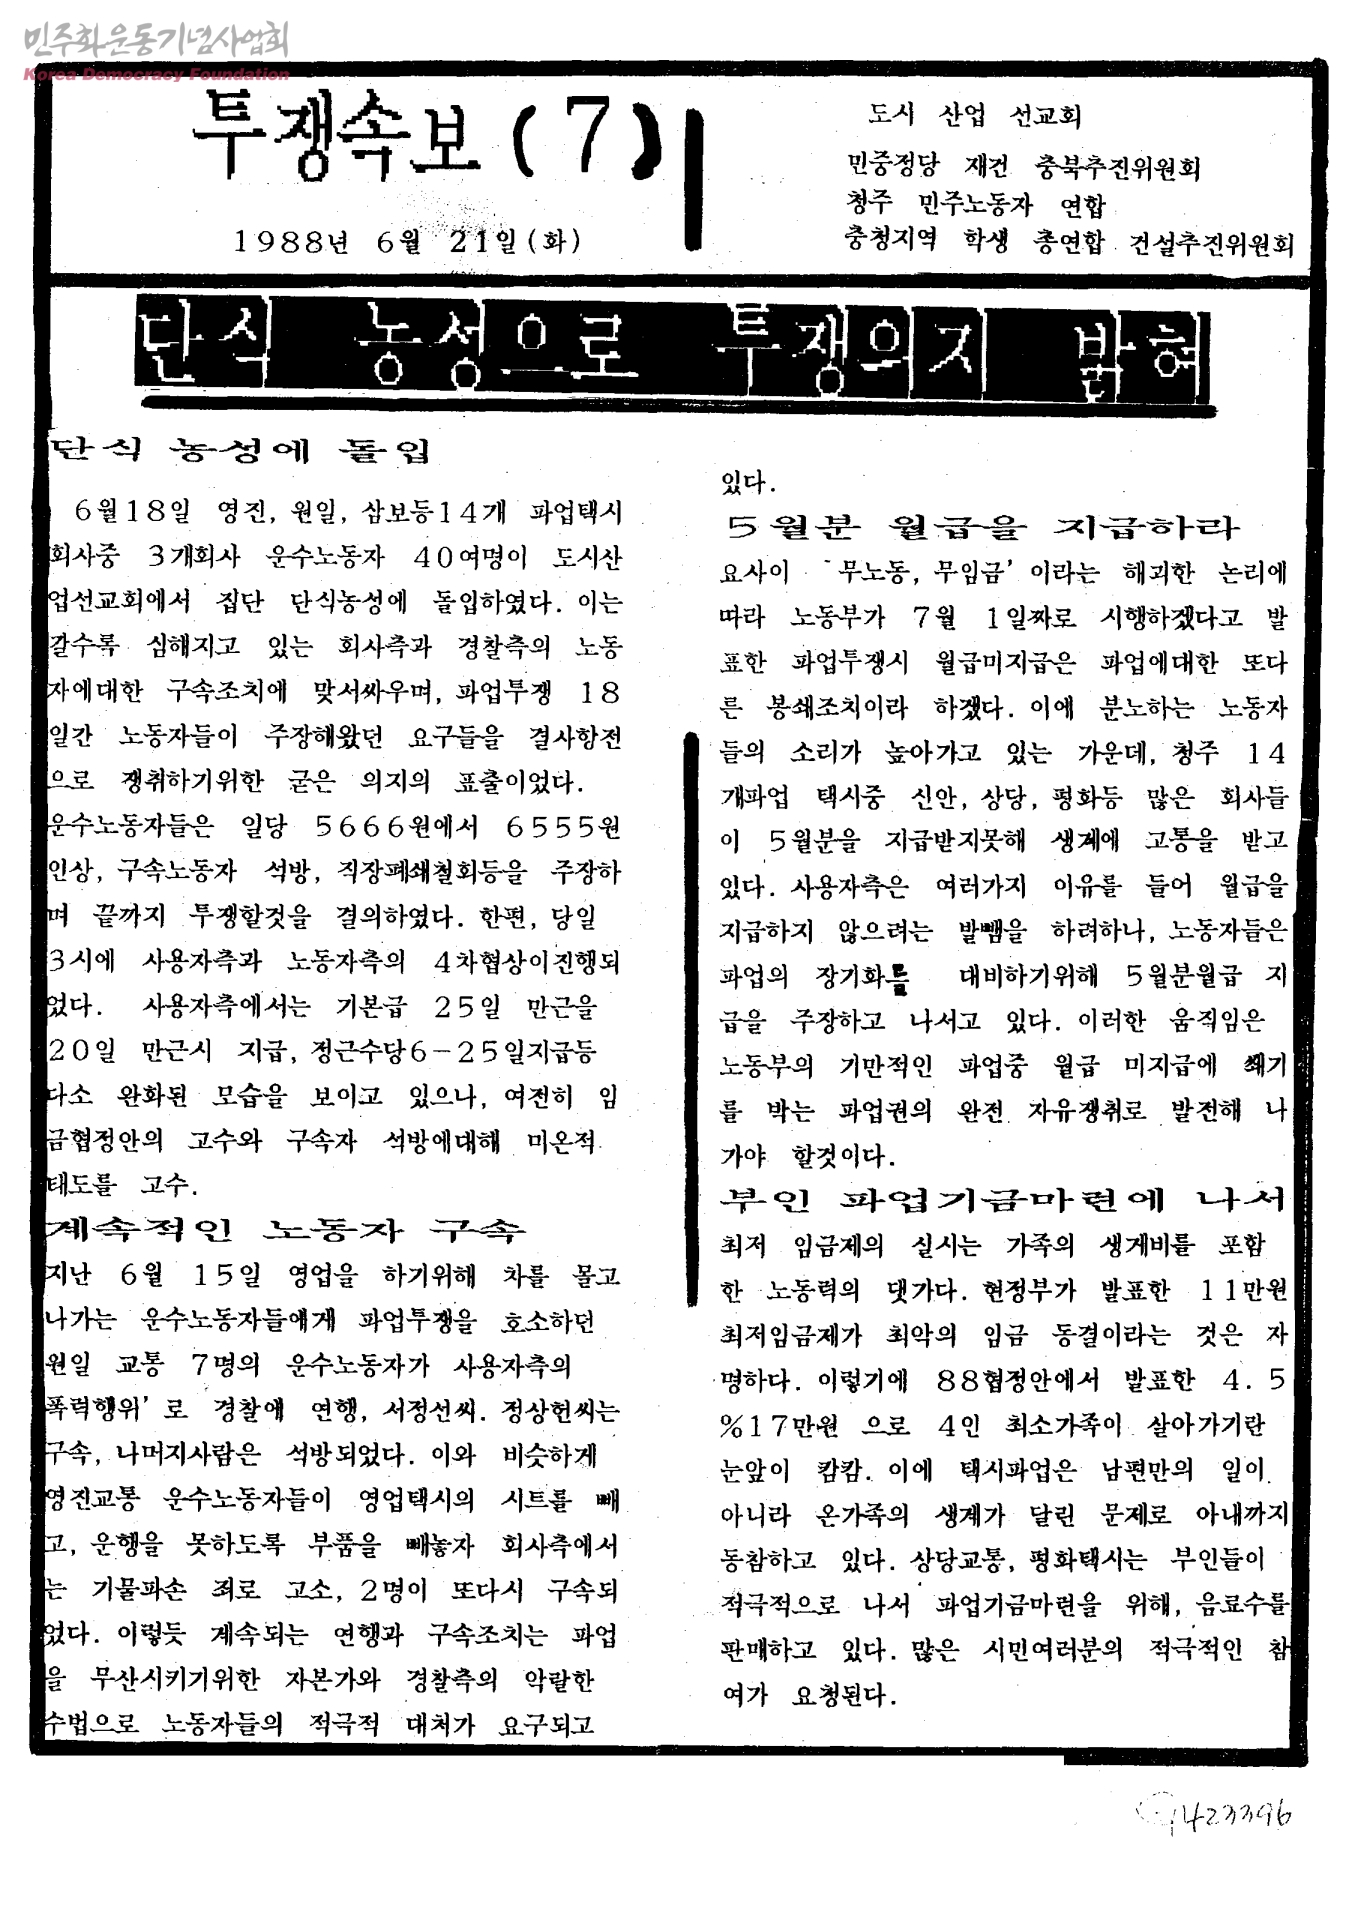 민주화운동기념사업회
Korea Democracy Foundation
투쟁속보(7)
1988년 6월 21일(화)
도시 산업 선교회
민중정당 재건 충북추진위원회
청주 민주노동자 연합
충청지역 학생 총연합 건설추진위원회
단식 농성으로 투쟁의지 밝혀
단식 농성에 돌입
6월18일 영진, 원일, 삼보등14개 파업택시
회사중 3개회사 운수노동자 40여명이 도시산
업선교회에서 집단 단식농성에 돌입하였다. 이는
갈수록 심해지고 있는 회사측과 경찰측의 노동
자에대한 구속조치에 맞서싸우며, 파업투쟁 18
일간 노동자들이 주장해왔던 요구들을 결사항전
으로 쟁취하기위한 굳은 의지의 표출이었다.
운수노동자들은 일당 5666원에서 6555원
인상, 구속노동자 석방, 직장폐쇄철회등을 주장하
며 끝까지 투쟁할것을 결의하였다. 한편, 당일
3시에 사용자측과 노동자측의 4차협상이진행되
었다. 사용자측에서는 기본급 25일 만근을
20일 만근시 지급, 정근수당6-25일지급등
다소 완화된 모습을 보이고 있으나, 여전히 임
금협정안의 고수와 구속자 석방에대해 미온적
태도를 고수.
계속적인 노동자 구속
지난 6월 15일 영업을 하기위해 차를 몰고
나가는 운수노동자들에게 파업투쟁을 호소하던
원일 교통 7명의 운수노동자가 사용자측의
폭력행위' 로 경찰에 연행, 서정선씨. 정상헌씨는
구속, 나머지사람은 석방되었다. 이와 비슷하게
영진교통 운수노동자들이 영업택시의 시트를 빼
고, 운행을 못하도록 부품을 빼놓자 회사측에서
는 기물파손 죄로 고소, 2명이 또다시 구속되
었다. 이렇듯 계속되는 연행과 구속조치는 파업
을 무산시키기위한 자본가와 경찰측의 악랄한
수법으로 노동자들의 적극적 대처가 요구되고
있다.
5월분 월급을 지급하라
요사이 `무노동, 무임금' 이라는 해괴한 논리에
따라 노동부가 7월 1일짜로 시행하겠다고 발
표한 파업투쟁시 월급미지급은 파업에대한 또다
른 봉쇄조치이라 하겠다. 이에 분노하는 노동자
들의 소리가 높아가고 있는 가운데, 청주 14
개파업 택시중 신안, 상당, 평화등 많은 회사들
이 5월분을 지급받지못해 생계에 고통을 받고
있다. 사용자측은 여러가지 이유를 들어 월급을
지급하지 않으려는 발뺌을 하려하나, 노동자들은
파업의 장기화를 대비하기위해 5월분월급 지
급을 주장하고 나서고 있다. 이러한 움직임은
노동부의 기만적인 파업중 월급 미지급에 쐐기
를 박는 파업권의 완전 자유쟁취로 발전해 나
가야 할것이다.
부인 파업기금마련에 나서
최저 임금제의 실시는 가족의 생계비를 포함
한 노동력의 댓가다. 현정부가 발표한 11만원
최저임금제가 최악의 임금 동결이라는 것은 자
명하다. 이렇기에 88협정안에서 발표한 4. 5
%17만원 으로 4인 최소가족이 살아가기란
눈앞이 캄캄. 이에 택시파업은 남편만의 일이
아니라 온가족의 생계가 달린 문제로 아내까지
동참하고 있다. 상당교통, 평화택시는 부인들이
적극적으로 나서 파업기금마련을 위해, 음료수를
판매하고 있다. 많은 시민여러분의 적극적인 참
여가 요청된다.
423396